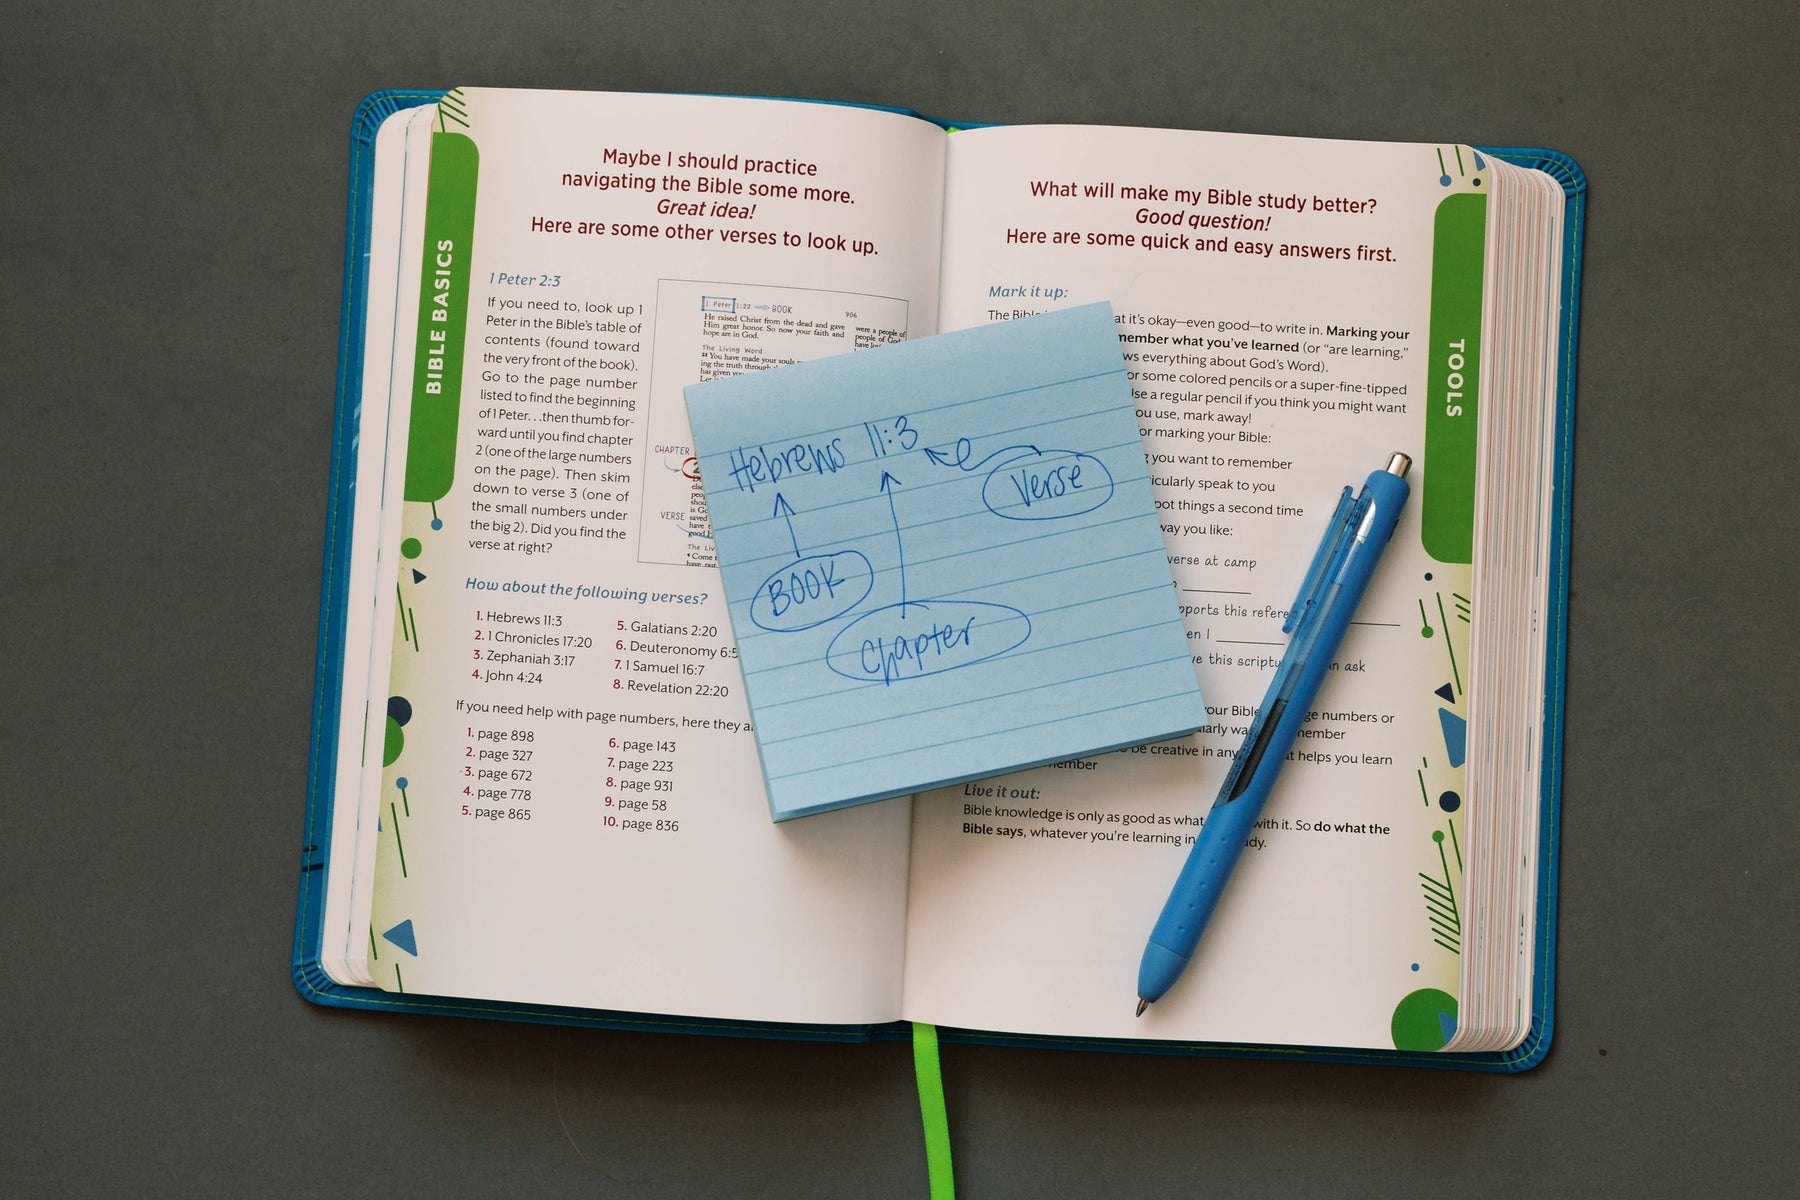 BIBLE BASICS
Maybe I should practice
navigating the Bible some more.
Great idea!
Here are some other verses to look up.
1 Peter 2:3
If you need to, look up 1
Peter in the Bible's table of
contents (found toward
the very front of the book).
Go to the page number
listed to find the beginning
of 1 Peter...then thumb for-
ward until you find chapter
2 (one of the large numbers
on the page). Then skim
down to verse 3 (one of
the small numbers under
the big 2). Did you find the
verse at right?
1 Peter 1:22 BOOK
906
He raised Christ from the dead and gave
Him great honor. So now your faith and
hope are in God.
The Living Word
22 You have made your souls
ing the truth through
has given you
were a people of
people of God
CHAPTER
2
VERSE
The Liv
Come t
How about the following verses?
1. Hebrews 11:3
2. 1 Chronicles 17:20
3. Zephaniah 3:17
4. John 4:24
5. Galatians 2:20
6. Deuteronomy 6:5
7. 1 Samuel 16:7
8. Revelation 22:20
If you need help with page numbers, here they
1. page 898
2. page 327
3. page 672
4. page 778
5. page 865
6. page 143
7. page 223
8. page 931
9. page 58
10. page 836
Hebrews 11:3
Verse
BOOK
Chapter
TOOLS
What will make my Bible study better?
Good question!
Here are some quick and easy answers first.
Mark it up:
The Bible at it's okay—even good—to write in. Marking your
member what you've learned (or "are learning,"
ws everything about God's Word).
or some colored pencils or a super-fine-tipped
se a regular pencil if you think you might want
ou use, mark away!
or marking your Bible:
g you want to remember
icularly speak to you
pot things a second time
way you like:
verse at camp
pports this refere
en I
ve this scriptu n ask
our Bible ge numbers or
larly wa member
be creative in any t helps you learn
member
Live it out:
Bible knowledge is only as good as what with it. So do what the
Bible says, whatever you're learning in dy.